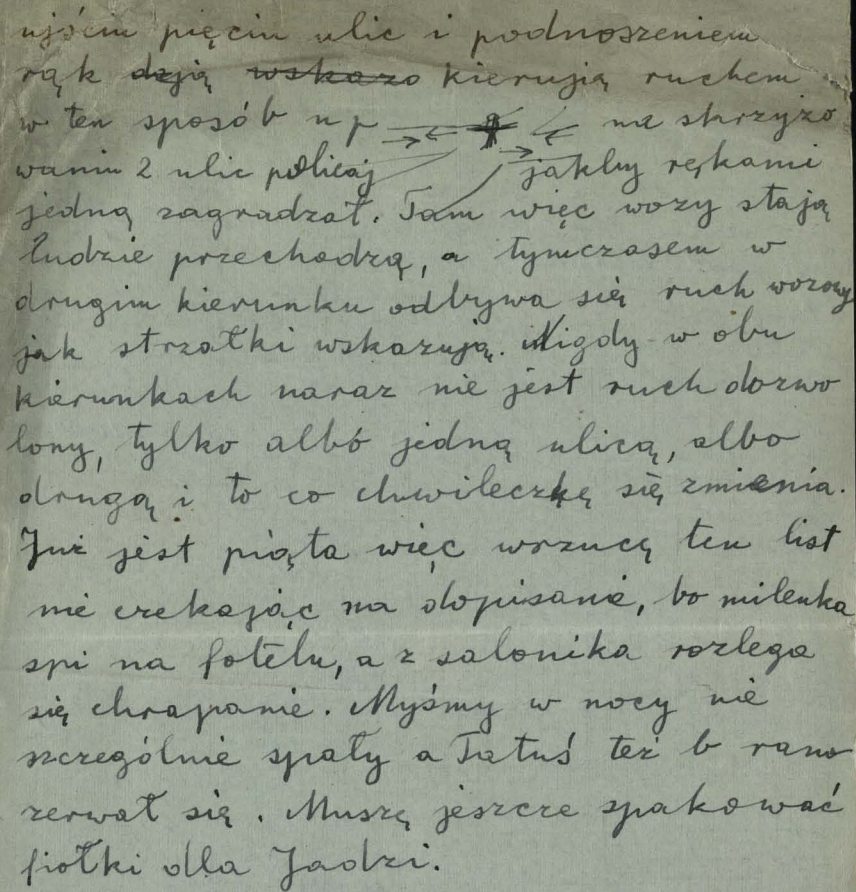 ujściu pięciu ulic i podnoszeniem
rąk dają wskazo kierują ruchem
w ten sposób np na skrzyżo
waniu 2 ulic policaj jakby rękami
jedną zagradzał. Tam więc wozy stają
ludzie przechodzą, a tymczasem w
drugim kierunku odbywa się ruch wozowy
jak strzałki wskazują. Nigdy w obu
kierunkach naraz nie jest ruch dozwo
lony, tylko albo jedną ulicą, albo
drugą i to co chwileczkę się zmienia.
Już jest piąta więc wrzucę ten list
nie czekając na dopisanie, bo milenka
spi na fotelu, a z salonika rozlega
się chrapanie. Myśmy w nocy nie
szczególnie spały a Tatuś też b rano
zerwał się. Muszę jeszcze spakować
fiołki dla Jadzi.